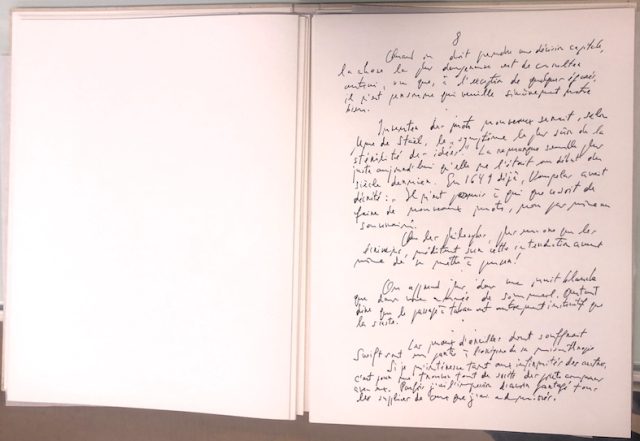 8
Quand on doit prendre une décision capitale,
la chose la plus dangereuse est de consulter
autrui, vu que, à l'exception de quelques égarés,
il n'est personne qui veuille sincèrement notre
bien.
Inventer des mots nouveaux serait, selon
Mme de Staël, le „symptôme le plus sûr de la
stérilité des idées". La remarque semble plus
juste aujourd'hui qu'elle ne l'était au début du
siècle dernier. En 1649 déjà, Vaugelas avait
décrété: „Il n'est permis à qui que ce soit de
faire de nouveaux mots, non pas même au
souverain".
Que les philosophes, plus encore que les
écrivains, méditent sur cette interdiction avant
même de se mettre à penser!
On apprend plus dans une nuit blanche
que dans une année de sommeil. Autant
dire que le passage à tabac est autrement instructif que
la sieste.
Les maux d'oreilles dont souffrait
Swift sont en partie à l'origine de sa misanthropie
Si je m'intéresse tant aux infirmités des autres,
c'est pour me trouver tout de suite des points communs
avec eux. Parfois j'ai l'impression d'avoir partagé tous
les supplices de ceux que j'ai admirés.